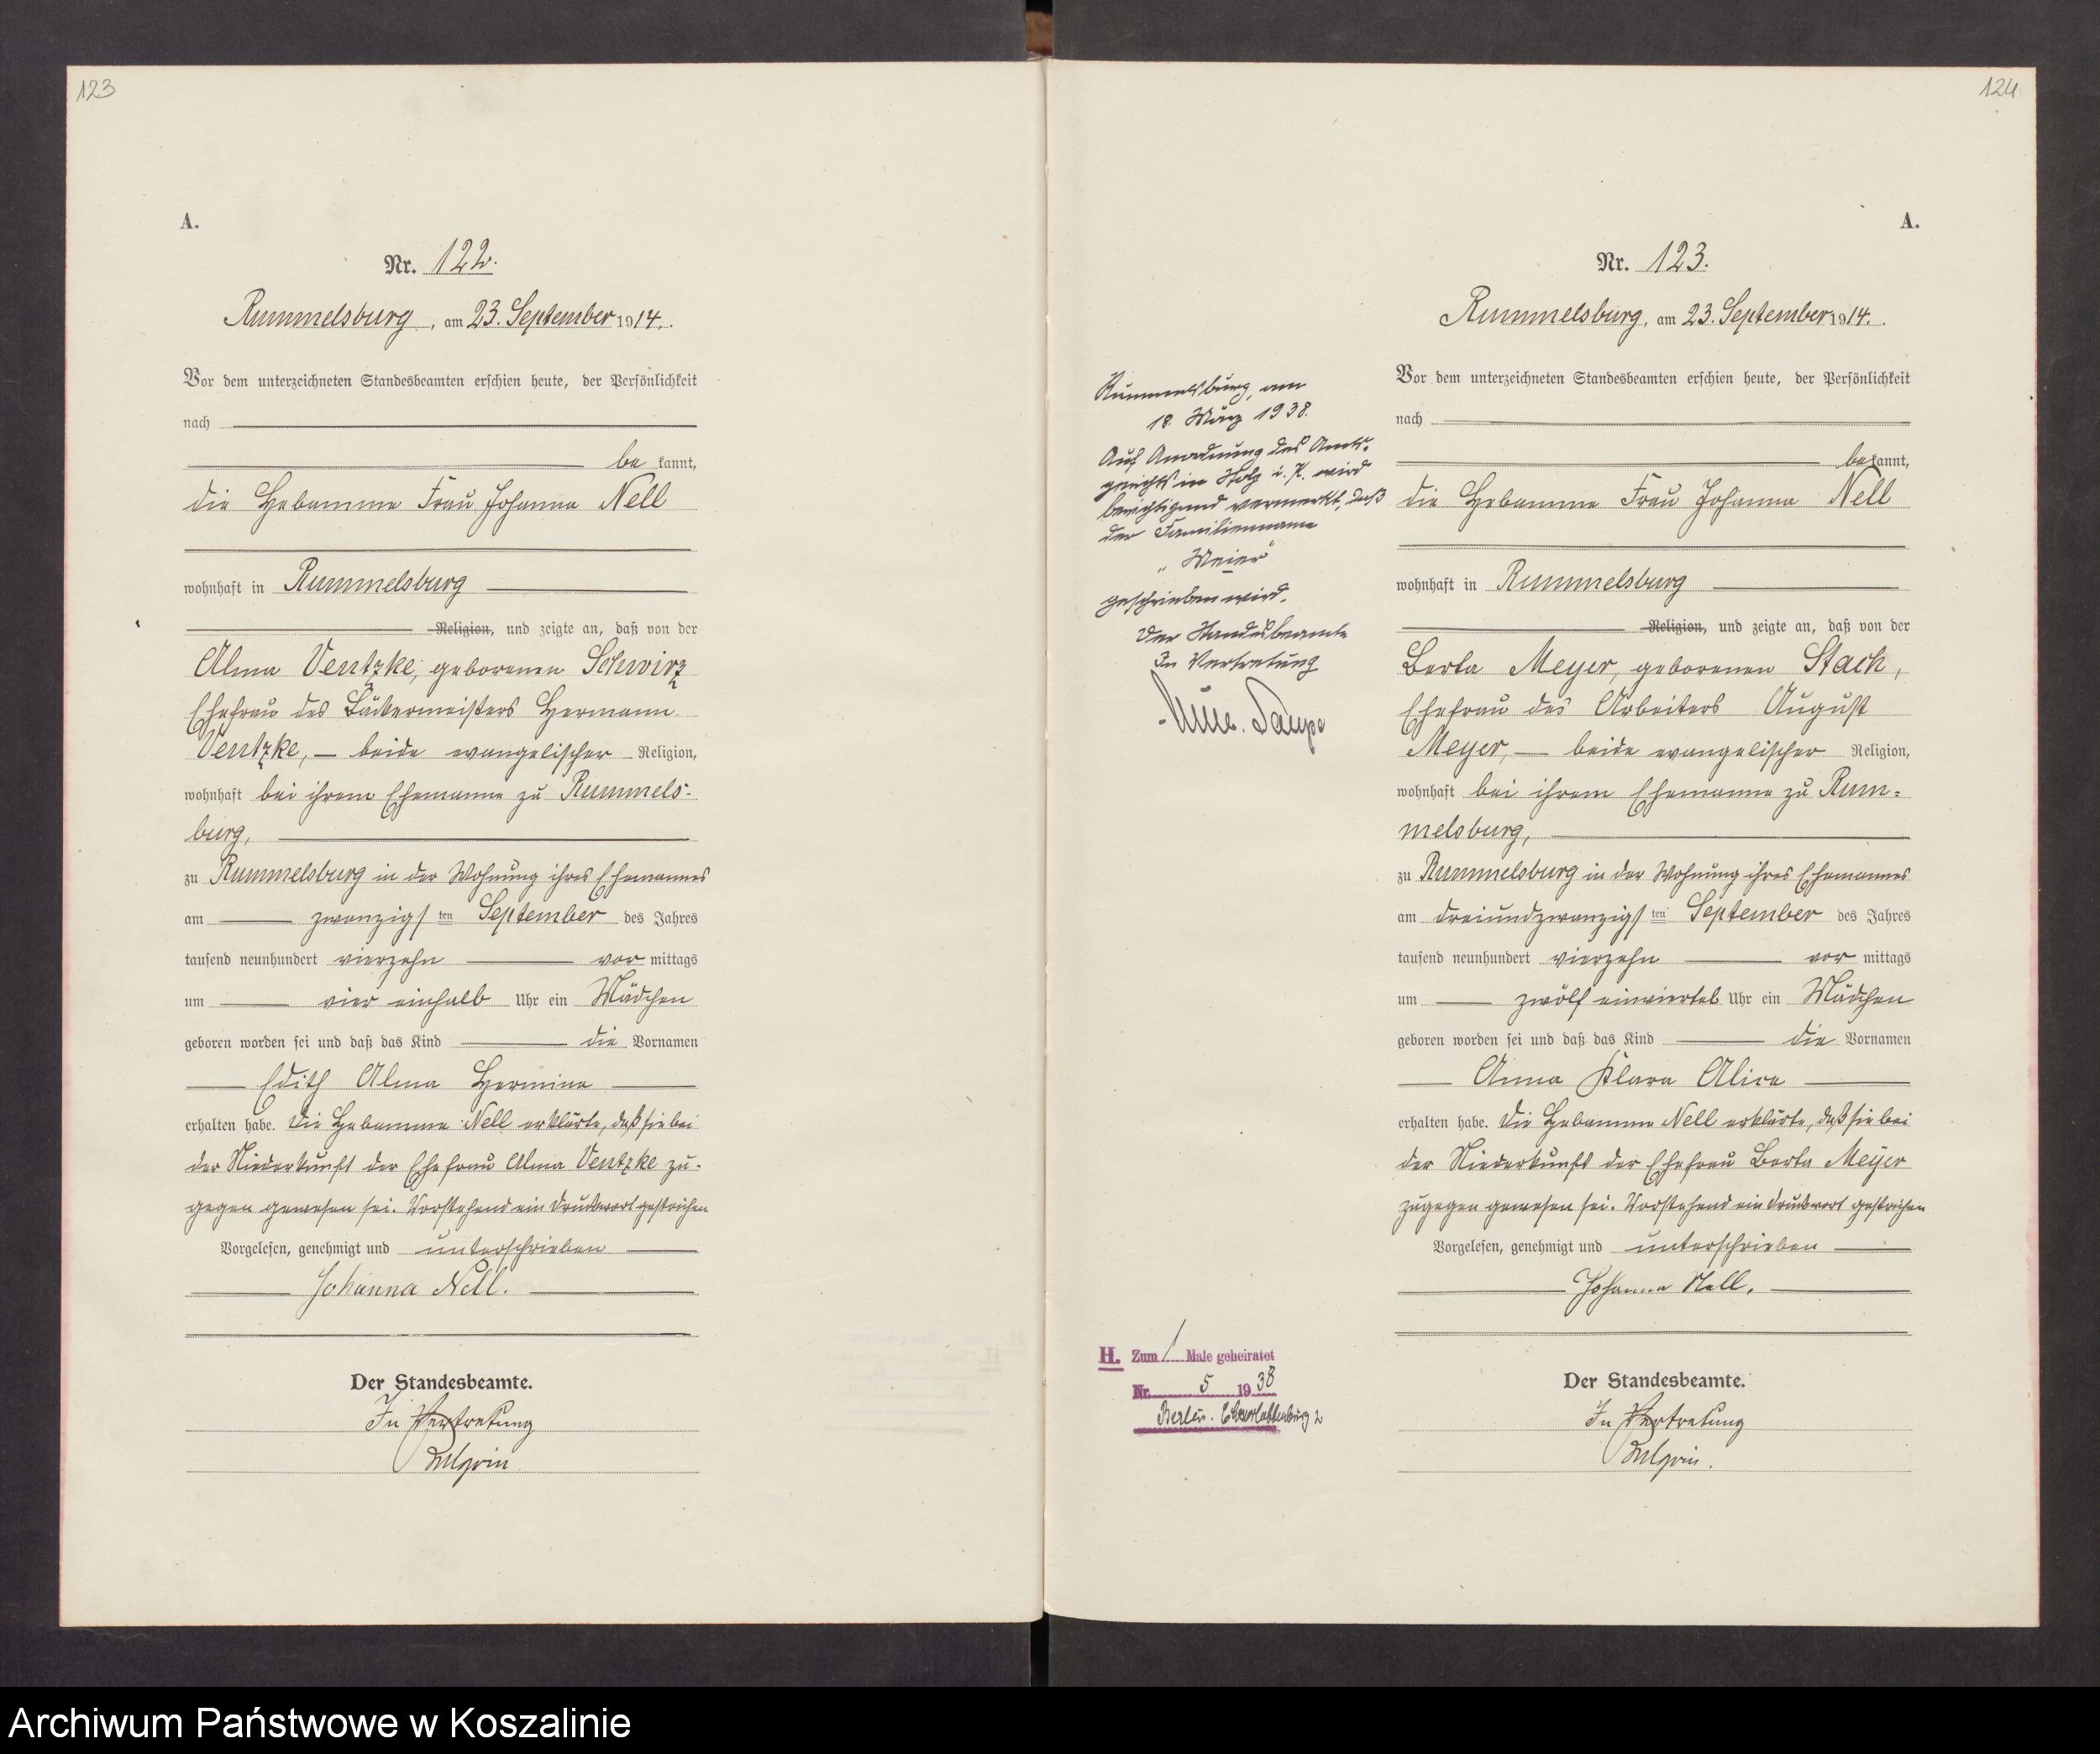 123
A.
Nr. 122.
Rummelsburg, am 23. September 1914.
Vor dem unterzeichneten Standesbeamten erschien heute, der Persönlichkeit
nach
be kannt,
die Hebamme Frau Johanna Nell
wohnhaft in Rummelsburg
Religion, und zeigte an, daß von der
Alma Ventzke, geborenen Schwirz
Ehefrau des Bäckermeisters Hermann
Ventzke, – beide evangelischer Religion,
wohnhaft bei ihrem Ehemanne zu Rummels-
burg,
zu Rummelsburg in der Wohnung ihres Ehemannes
am zwanzigsten September des Jahres
tausend neunhundert vierzehn vor mittags
um vier einhalb Uhr ein Mädchen
geboren worden sei und daß das Kind die Vornamen
Edith Alma Hermine
erhalten habe. Die Hebamme Nell erklärte, daß sie bei
der Niederkunft der Ehefrau Alma Ventzke zu-
gegen gewesen sei. Vorstehend ein Druckwort gestrichen
Vorgelesen, genehmigt und unterschrieben
Johanna Nell.
Der Standesbeamte.
In Vertretung
124
A.
Nr. 123.
Rummelsburg, am 23. September 1914.
Vor dem unterzeichneten Standesbeamten erschien heute, der Persönlichkeit
nach
bekannt,
die Hebamme Frau Johanna Nell
wohnhaft in Rummelsburg
Religion, und zeigte an, daß von der
Berta Meyer, geborenen Stach,
Ehefrau des Arbeiters August
Meyer, – beide evangelischer Religion,
wohnhaft bei ihrem Ehemanne zu Rum-
melsburg,
zu Rummelsburg in der Wohnung ihres Ehemannes
am dreiundzwanzigsten September des Jahres
tausend neunhundert vierzehn vor mittags
um zwölf einviertel Uhr ein Mädchen
geboren worden sei und daß das Kind die Vornamen
Anna Klara Alice
erhalten habe. Die Hebamme Nell erklärte, daß sie bei
der Niederkunft der Ehefrau Berta Meyer
zugegen gewesen sei. Vorstehend ein Druckwort gestrichen
Vorgelesen, genehmigt und unterschrieben
Johanna Nell.
Der Standesbeamte.
In Vertretung
Rummelsburg, am
18. März 1938.
Auf Anordnung des Amts-
gerichts in Stolp i. P. wird
berichtigend vermerkt, daß
der Familienname
„Meier“
geschrieben wird.
Der Standesbeamte
In Vertretung
H. Zum 1 Male geheiratet
Nr. 5 1938
Berlin-Charlottenburg 2
Archiwum Państwowe w Koszalinie